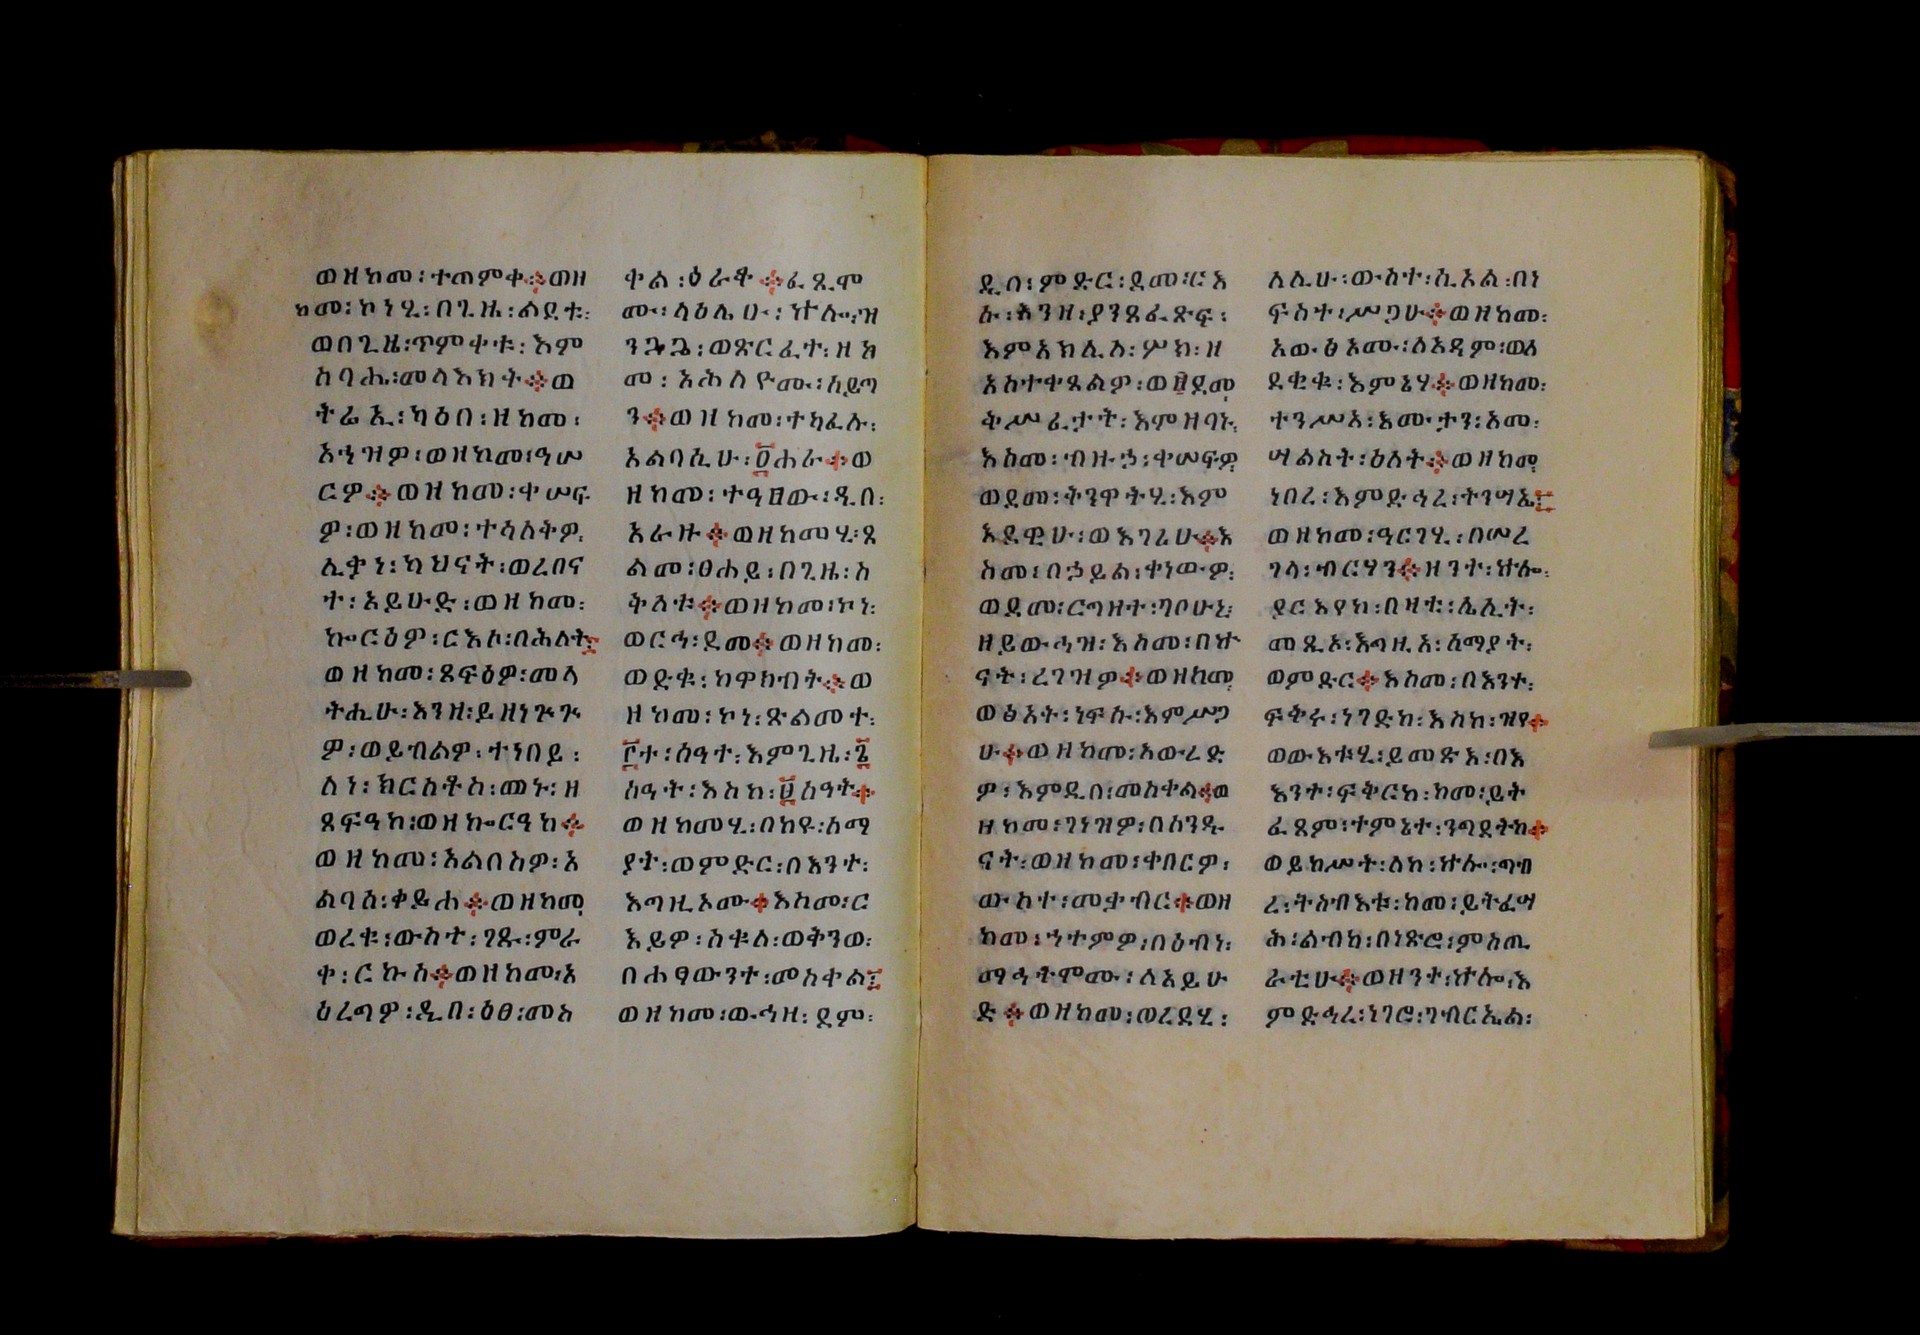 ወዘከመ፡ተጠምቀ፨ወዘ
ከመ፡ኮነሂ፡በጊዜ፡ልደቱ፡
ወበጊዜ፡ጥምቀቱ፡እም
ስባሔ፡መላእክት፨ወ
ትሬኢ፡ካዕበ፡ዘከመ፡
አኀዝዎ፡ወዘከመ፡ዓሠ
ርዎ፨ወዘከመ፡ቀሠፍ
ዎ፡ወዘከመ፡ተሳለትዎ፡
ሊቃነ፡ካህናት፡ወረበና
ት፡አይሁድ፡ወዘከመ፡
ኰርዕዎ፡ርእሶ፡በሕለት፨
ወዘከመ፡ጸፍዕዎ፡መላ
ትሒሁ፡እንዘ፡ይዘነጕጕ
ዎ፡ወይብልዎ፡ተነበይ፡
ለነ፡ክርስቶስ፡መኑ፡ዘ
ጸፍዓከ፡ወዘኰርዓከ፨
ወዘከመ፡አልበስዎ፡አ
ልባሰ፡ቀይሐ፨ወዘከመ
ወረቁ፡ውስተ፡ገጹ፡ምራ
ቀ፡ርኩስ፨ወዘከመ፡አ
ዕረግዎ፡ዲበ፡ዕፀ፡መስ
ቀል፡ዕራቆ፨ፈጺሞ
ሙ፡ላዕሌሁ፡ኵሎ፡ዝ
ንጓጔ፡ወጽርፈተ፡ዘአ
መ፡አሕለዮሙ፡ሰይጣ
ን፨ወዘከመ፡ተካፈሉ፡
አልባሲሁ፡፬ሐራ፨ወ
ዘከመ፡ተዓፀው፡ዲበ፡
አራዙ፨ወዘከመሂ፡ጸ
ልመ፡ፀሐይ፡በጊዜ፡ስ
ቅለቱ፨ወዘከመ፡ኮነ፡
ወርኅ፡ደመ፨ወዘከመ፡
ወድቁ፡ከዋክብት፨ወ
ዘከመ፡ኮነ፡ጽልመተ፡
፫ተ፡ሰዓተ፡እምጊዜ፡፮
ሰዓት፡እስከ፡፱ሰዓት፨
ወዘከመሂ፡በከዩ፡ሰማ
ያት፡ወምድር፡በእንተ፡
እግዚኦሙ፨እስመ፡ር
እይዎ፡ስቁለ፡ወቅንወ፡
በሐፃውንተ፡መስቀል፨
ወዘከመ፡ውኅዘ፡ደም፡
ዲበ፡ምድር፡ደመ፡ርእ
ሱ፡እንዘ፡ያንጸፈጽፍ፡
እምአክሊለ፡ሦክ፡ዘ
አስተቀጸልዎ፡ወ፱ደመ
ቅሥፈታት፡እምዘባኑ፡
እስመ፡ብዙኃ፡ቀሠፍዎ
ወደመ፡ቅንዋትሂ፡እም
እደዊሁ፡ወእገሪሁ፨እ
ስመ፡በኃይል፡ቀነውዎ፡
ወደመ፡ርግዘት፡ገቦሁኒ፡
ዘይውሕዝ፡እስመ፡በኵ
ናት፡ረገዝዎ፨ወዘከመ
ወፅአት፡ነፍሱ፡እምሥጋ
ሁ፨ወዘከመ፡አውረድ
ዎ፡እምዲበ፡መስቀል፨ወ
ዘከመ፡ገነዝዎ፡በሰንዱ
ናት፡ወዘከመ፡ቀበርዎ፡
ውስተ፡መቃብር፨ወዘ
ከመ፡ኀተምዎ፡በዕብነ፡
ማኅተሞሙ፡ለአይሁ
ድ፨ወዘከመ፡ወረደሂ፡
ለሊሁ፡ውስተ፡ሲኦል፡በነ
ፍስተ፡ሥጋሁ፨ወዘከመ፡
አውፅአሙ፡ለአዳም፡ወለ
ደቂቁ፡እምኔሃ፨ወዘከመ፡
ተንሥአ፡እሙታን፡አመ፡
ሣልስት፡ዕለት፨ወዘከመ
ነበረ፡እምድኅረ፡ትንሣኤ፨
ወዘከመ፡ዓርገሂ፡በሠረ
ገላ፡ብርሃን፨ዘንተ፡ኵሎ፡
ደርእየከ፡በዛቲ፡ሌሊት፡
መጺኦ፡እግዚአ፡ሰማያት፡
ወምድር፨እስመ፡በእንተ፡
ፍቅሩ፡ነገድከ፡እስከ፡ዝየ፨
ወውእቱሂ፡ይመጽእ፡በእ
እንተ፡ፍቅርከ፡ከመ፡ይት
ፈጸም፡ተምኔተ፡ንግደትከ፨
ወይከሥት፡ለከ፡ኵሎ፡ግብ
ረ፡ትስብእቱ፡ከመ፡ይትፈሣ
ሕ፡ልብከ፡በነጽሮ፡ምስጢ
ራቲሁ፨ወዘንተ፡ኵሎ፡እ
ምድኅረ፡ነገሮ፡ገብርኤል፡